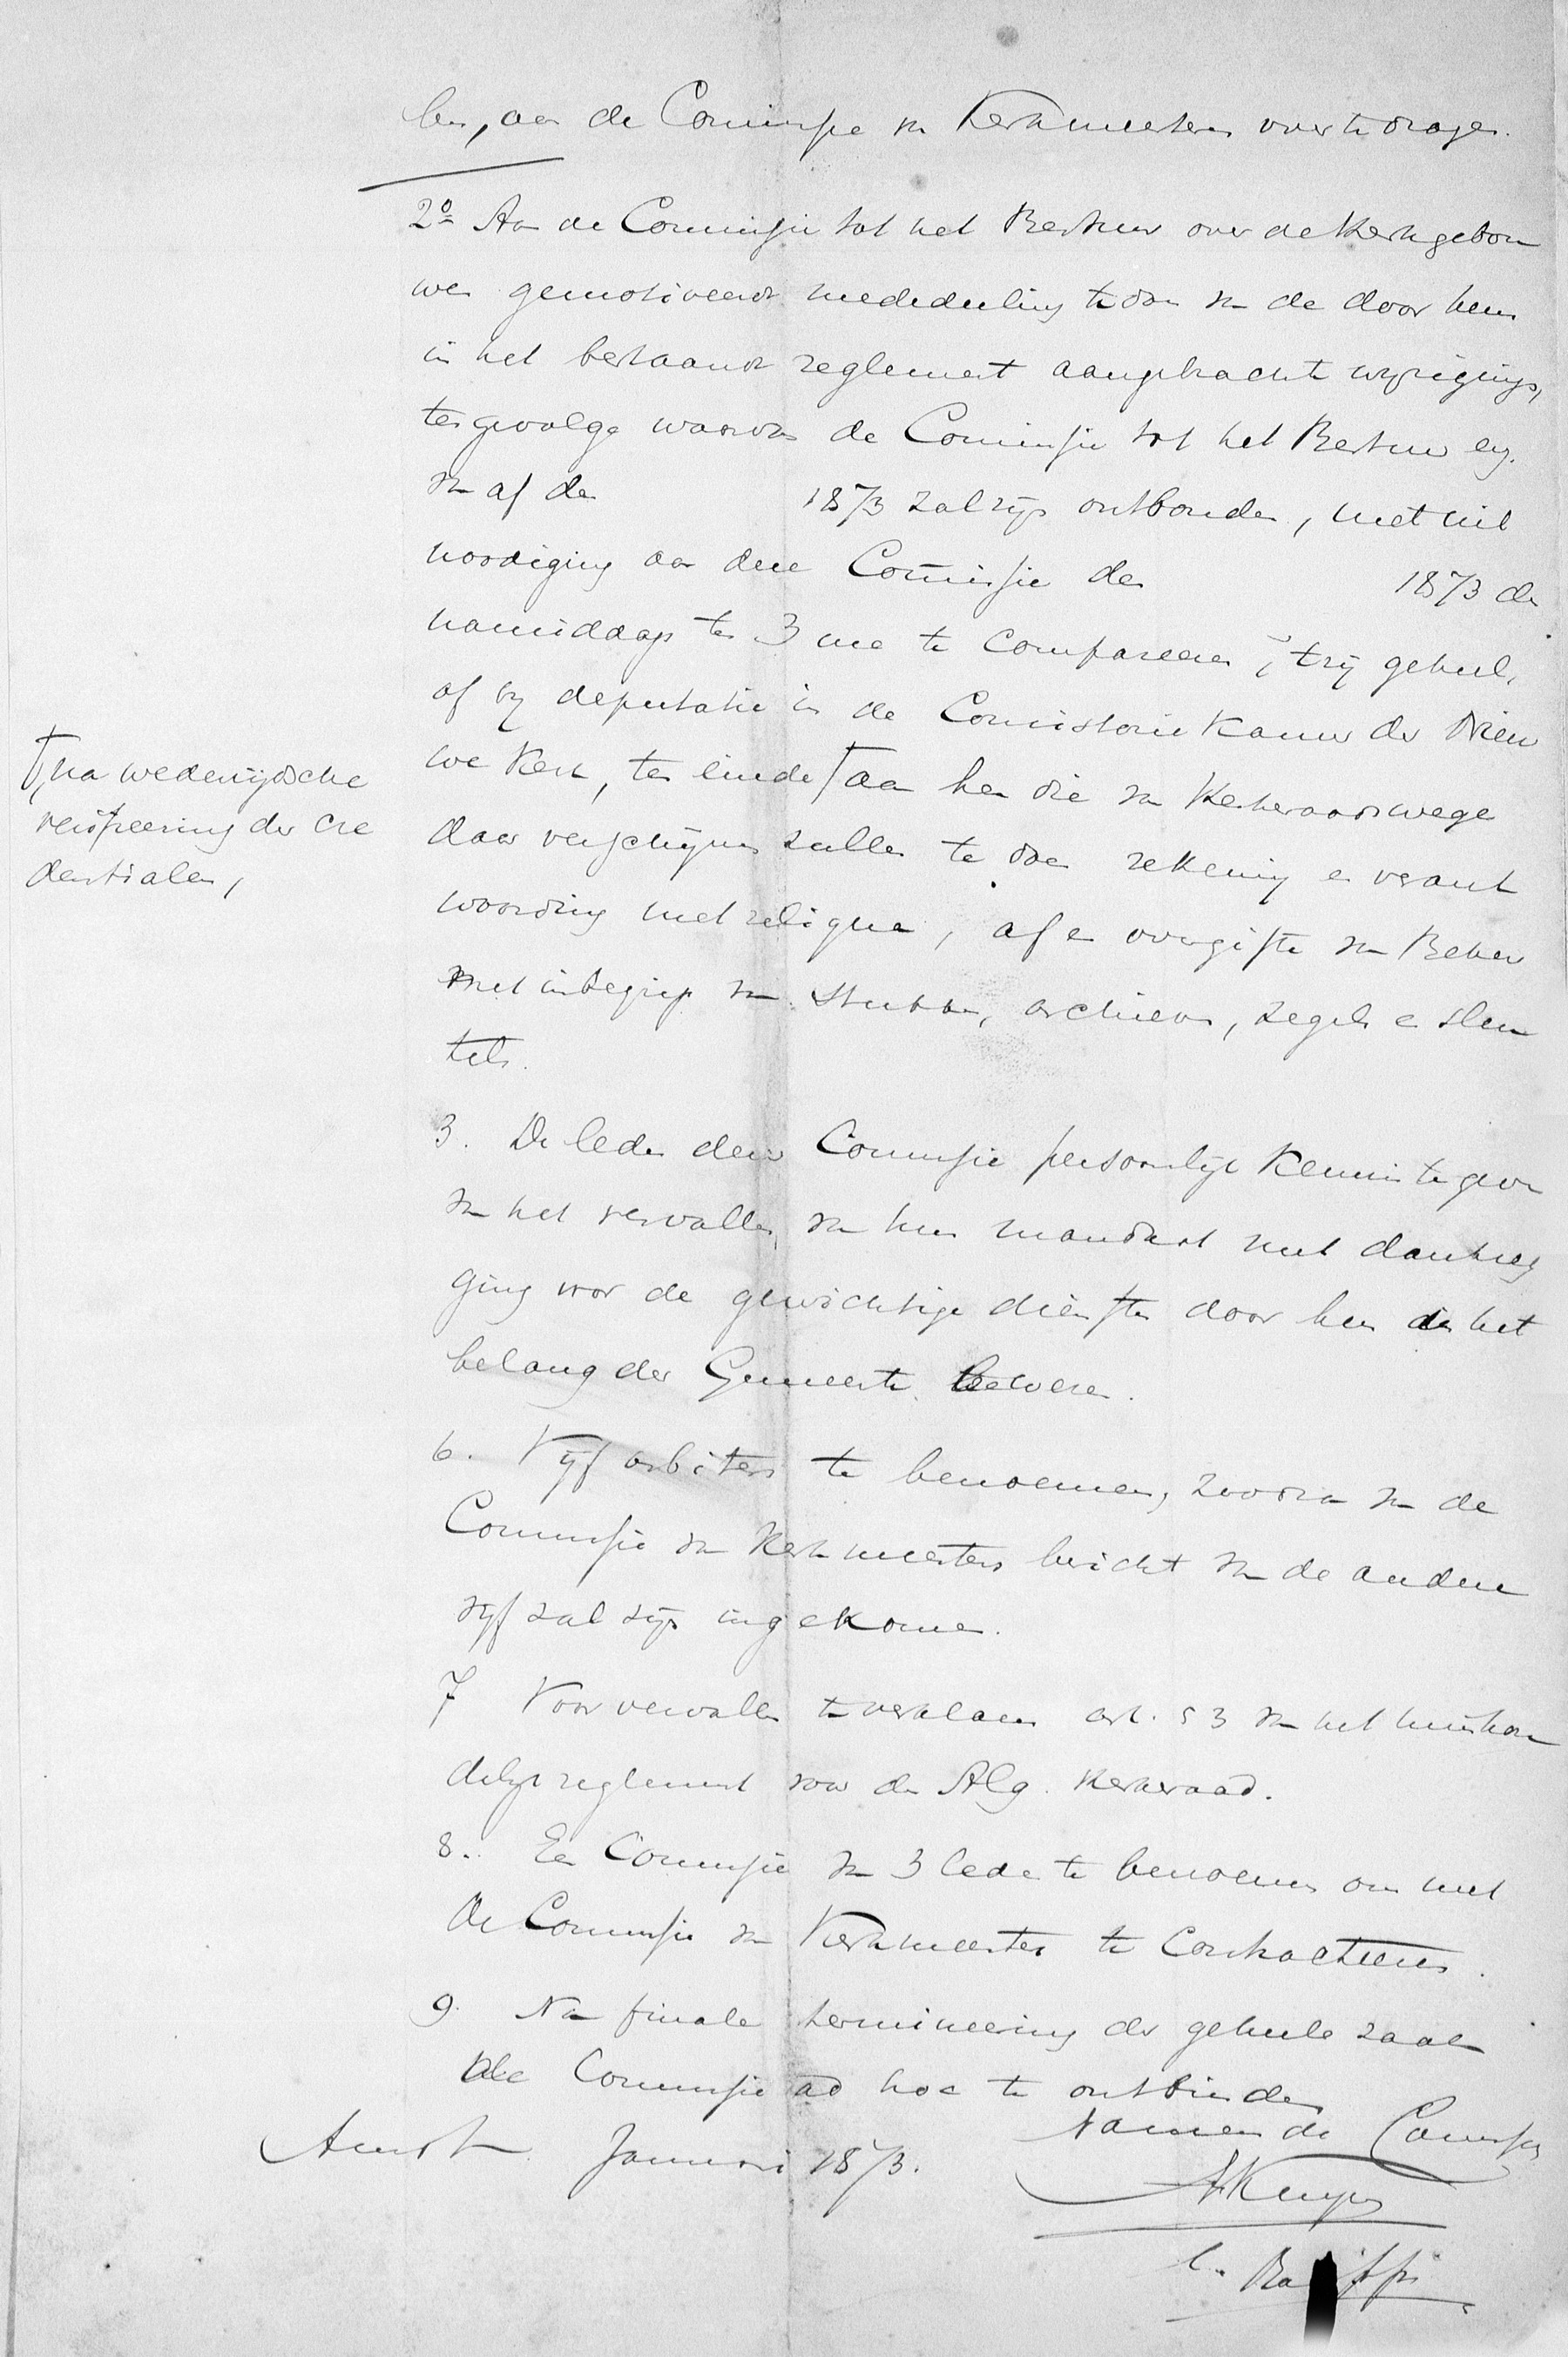 len, aan de Commissie van Kerkmeesteren over te dragen.
2º Aan de Commissie tot het Bestuur over de Kerkgebou
wen gemotiveerde mededeeling te doen van de door hem
in het bestaande reglement aangebrachte wijzigingen,
tengevolge waarvan de Commissie tot het Bestuur enz.
van af den 1873 zal zijn ontbonden, met uit
noodiging aan deze Commissie den 1873 des
namiddags ten 3 ure te compareeren, 't zij geheel,
of bij deputatie in de Consistoriekamer der Nieu
we Kerk, ten einde ꝉ aan hen die van Kerkeraadswege
ꝉ, na wederzijdsche
verifieering der cre
dentialen,
daar verschijnen zullen te doen rekening en verant
woording met reliqua, af en overgifte van Beheer
met inbegrip van stukken, archieven, zegels en sleu
tels.
3. De leden dezer Commissie persoonlijk kennis te geven
van het vervallen van hun mandaat met dankzeg
ging voor de gewichtige diensten door hen in het
belang der Gemeente bewezen.
6. Vijf arbiters te benoemen, zoodra van de
Commissie van Kerkmeesters bericht van de andere
vijf zal zijn ingekomen.
7 Voor vervallen te verklaren art. 53 van het huishou
delijk reglement voor den Alg. Kerkeraad.
8. Een Commissie van 3 leden te benoemen om met
de Commissie van Kerkmeesters te Contracteeren.
9. Na finale termineering der geheele zaak
de Commissie ad hoc te ontbinden
Namens de Commissie
Amst. Januari 1873.
A Kuyper
C.